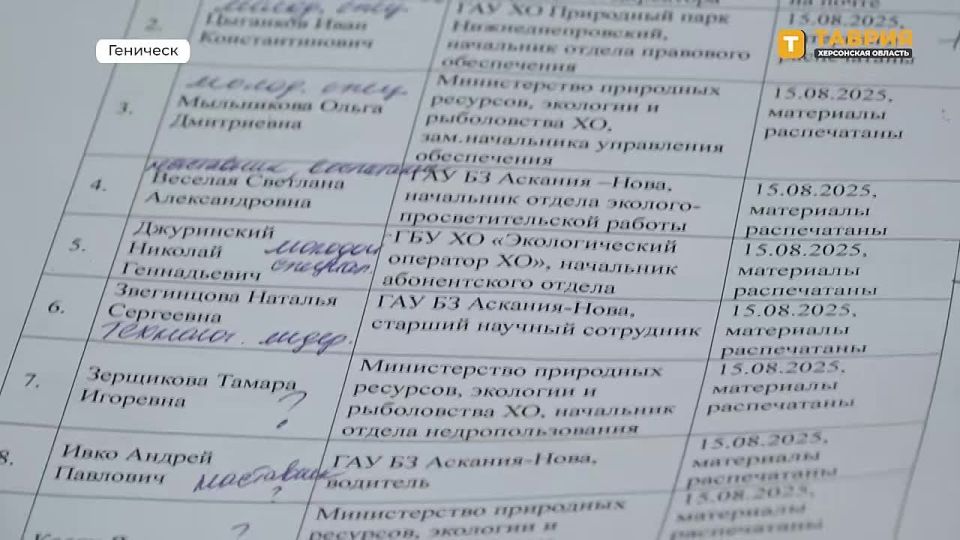 Геническ
ТАВРИЯ
ХЕРСОНСКАЯ ОБЛАСТЬ
2.
молод. спец.
Цыганков Иван
Константинович
ГАУ ХО Природный парк
Нижнеднепровский,
начальник отдела правового
обеспечения
на почте
15.08.2025,
распечатаны
3.
молод. спец.
Мыльникова Ольга
Дмитриевна
Министерство природных
ресурсов, экологии и
рыболовства ХО,
зам.начальника управления
обеспечения
15.08.2025,
материалы
распечатаны
4.
наставник,
Веселая Светлана
Александровна
ГАУ БЗ Аскания –Нова,
начальник отдела эколого-
просветительской работы
15.08.2025,
материалы
распечатаны
5.
Джуринский
Николай молодой
Геннадьевич специал.
ГБУ ХО «Экологический
оператор ХО», начальник
абонентского отдела
15.08.2025,
материалы
распечатаны
6.
Звегинцова Наталья
Сергеевна
Технолог. лидер.
ГАУ БЗ Аскания-Нова,
старший научный сотрудник
15.08.2025,
материалы
распечатаны
7.
Зерщикова Тамара
Игоревна ?
Министерство природных
ресурсов, экологии и
рыболовства ХО, начальник
отдела недропользования
15.08.2025,
материалы
распечатаны
8.
Ивко Андрей
Павлович наставник
?
ГАУ БЗ Аскания-Нова,
водитель
15.08.2025,
материалы
распечатаны
?
Министерство природных
ресурсов, экологии и
15.08.2025,
материалы
распечатаны